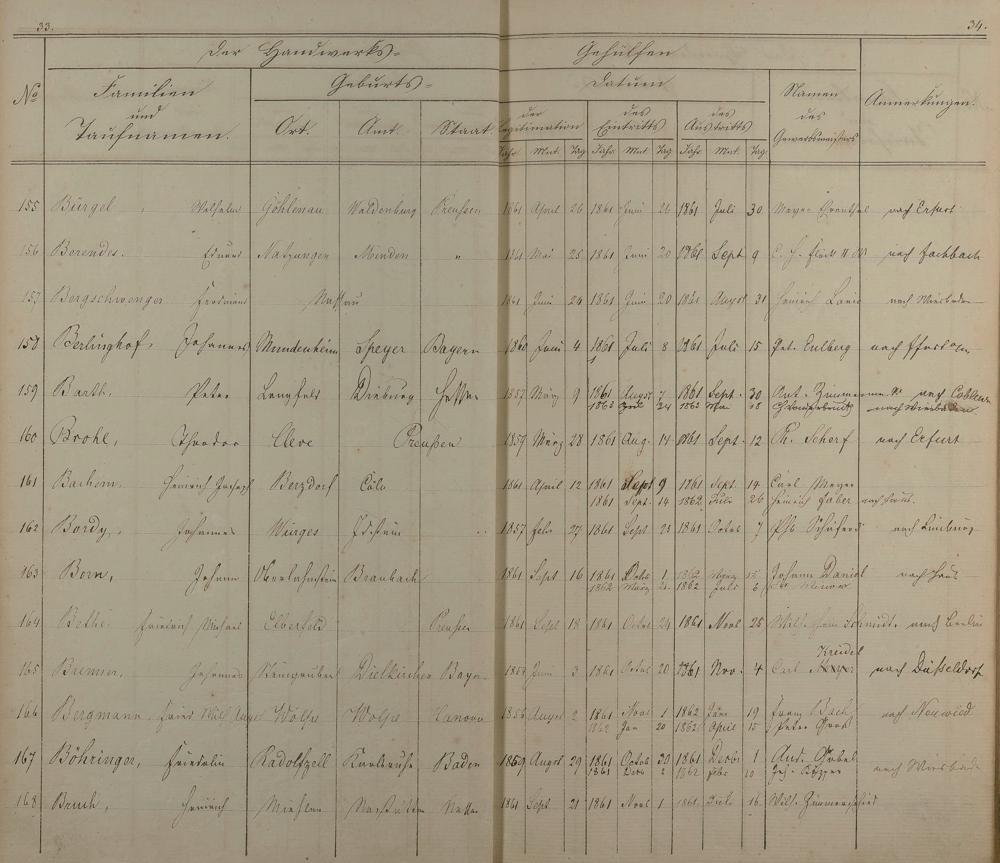 33. 34.
Der Handwerks= Gehülfen
No Familien und Taufnamen. Geburts= Datum Namen des Gewerbsmeisters Anmerkungen.
Ort. Amt. Staat. der Legitimation des Eintritts des Austritts
Jahr Mnt. Tag Jahr Mnt Tag Jahr Mnt. Tag
155 Bürgel, Wilhelm Göhlenau Waldenburg Preußen 1861 April 26 1861 Juni 26 1861 Juli 30 Meyer nach Erfurt
156 Berendes. Eduard Natzungen Minden " 1861 Mai 25 1861 Juni 20 1861 Sept 9 nach Fachbach
157 Bergschwenger Ferdinand Nassau 1861 Juni 24 1861 Juni 20 1861 August 31 Heinrich nach Wiesbaden
158 Berlinghof, Johannes Mundenheim Speyer Bayern 1860 Juni 4 1861 Juli 8 1861 Juli 15 Pet. Eulberg nach
159 Barth. Peter Lengfeld Dieburg Hessen 1857 März 9 1861 August 7 1861 Sept. 30 Ant. Zimmermann nach Coblenz
1862 April 24 1862 Mai 18 nach Wiesbaden
160 Brohl, Theodor Cleve Preußen 1857 März 28 1861 Aug. 14 1861 Sept. 12 Ph. Scherf nach Erfurt
161 Bachem. Heinrich Joseph Berzdorf Cöln 1861 April 12 1861 Sept 9 1861 Sept. 14 Carl Meyer
1861 Sept. 14 1862 Juli 26 Heinrich Faber nach Haus
162 Bordy, Johannes Würges Idstein " 1857 Febr 27 1861 Sept 25 1861 Octob 7 Phl. Schäfer nach Limburg
163 Born, Johann Oberlahnstein Braubach 1861 Sept 16 1861 Octob 1 1862 März 15 Johann Daniel nach Haus
1862 März 1862 Juli 6
164 Friedrich Elberfeld Preußen 1861 Sept 18 1861 Octob 24 1861 Novb 25 Wilh. Schmidt. nach Berlin
Kreidel
165 Bremer, Johannes Steingruben Dielkirchen Bayern Juni 3 1861 Octob 20 1861 Nov. 4 Carl nach Düsseldorf
166 Bergmann, Fried. Wilh. Wölpe Wölpe Hanover 1856 August 2 1861 Novb 1 1862 Jän 19 Franz Bach nach Neuwied
1862 Jan 20 1862 April 15 Peter
167 Böhringer, Fridolin Radolfzell Karlsruhe Baden 1859 August 29 1861 Octob 30 1861 Decbr 1 And. Gabel nach Wiesbaden
1861 Decb 2 1862 Febr 10 Joh.
168 Bruch, Heinrich Miehlen Nastätten Nassau 1861 Sept 21 1861 Novb 1 1861 Juli 16 Wilh. Zimmerschied